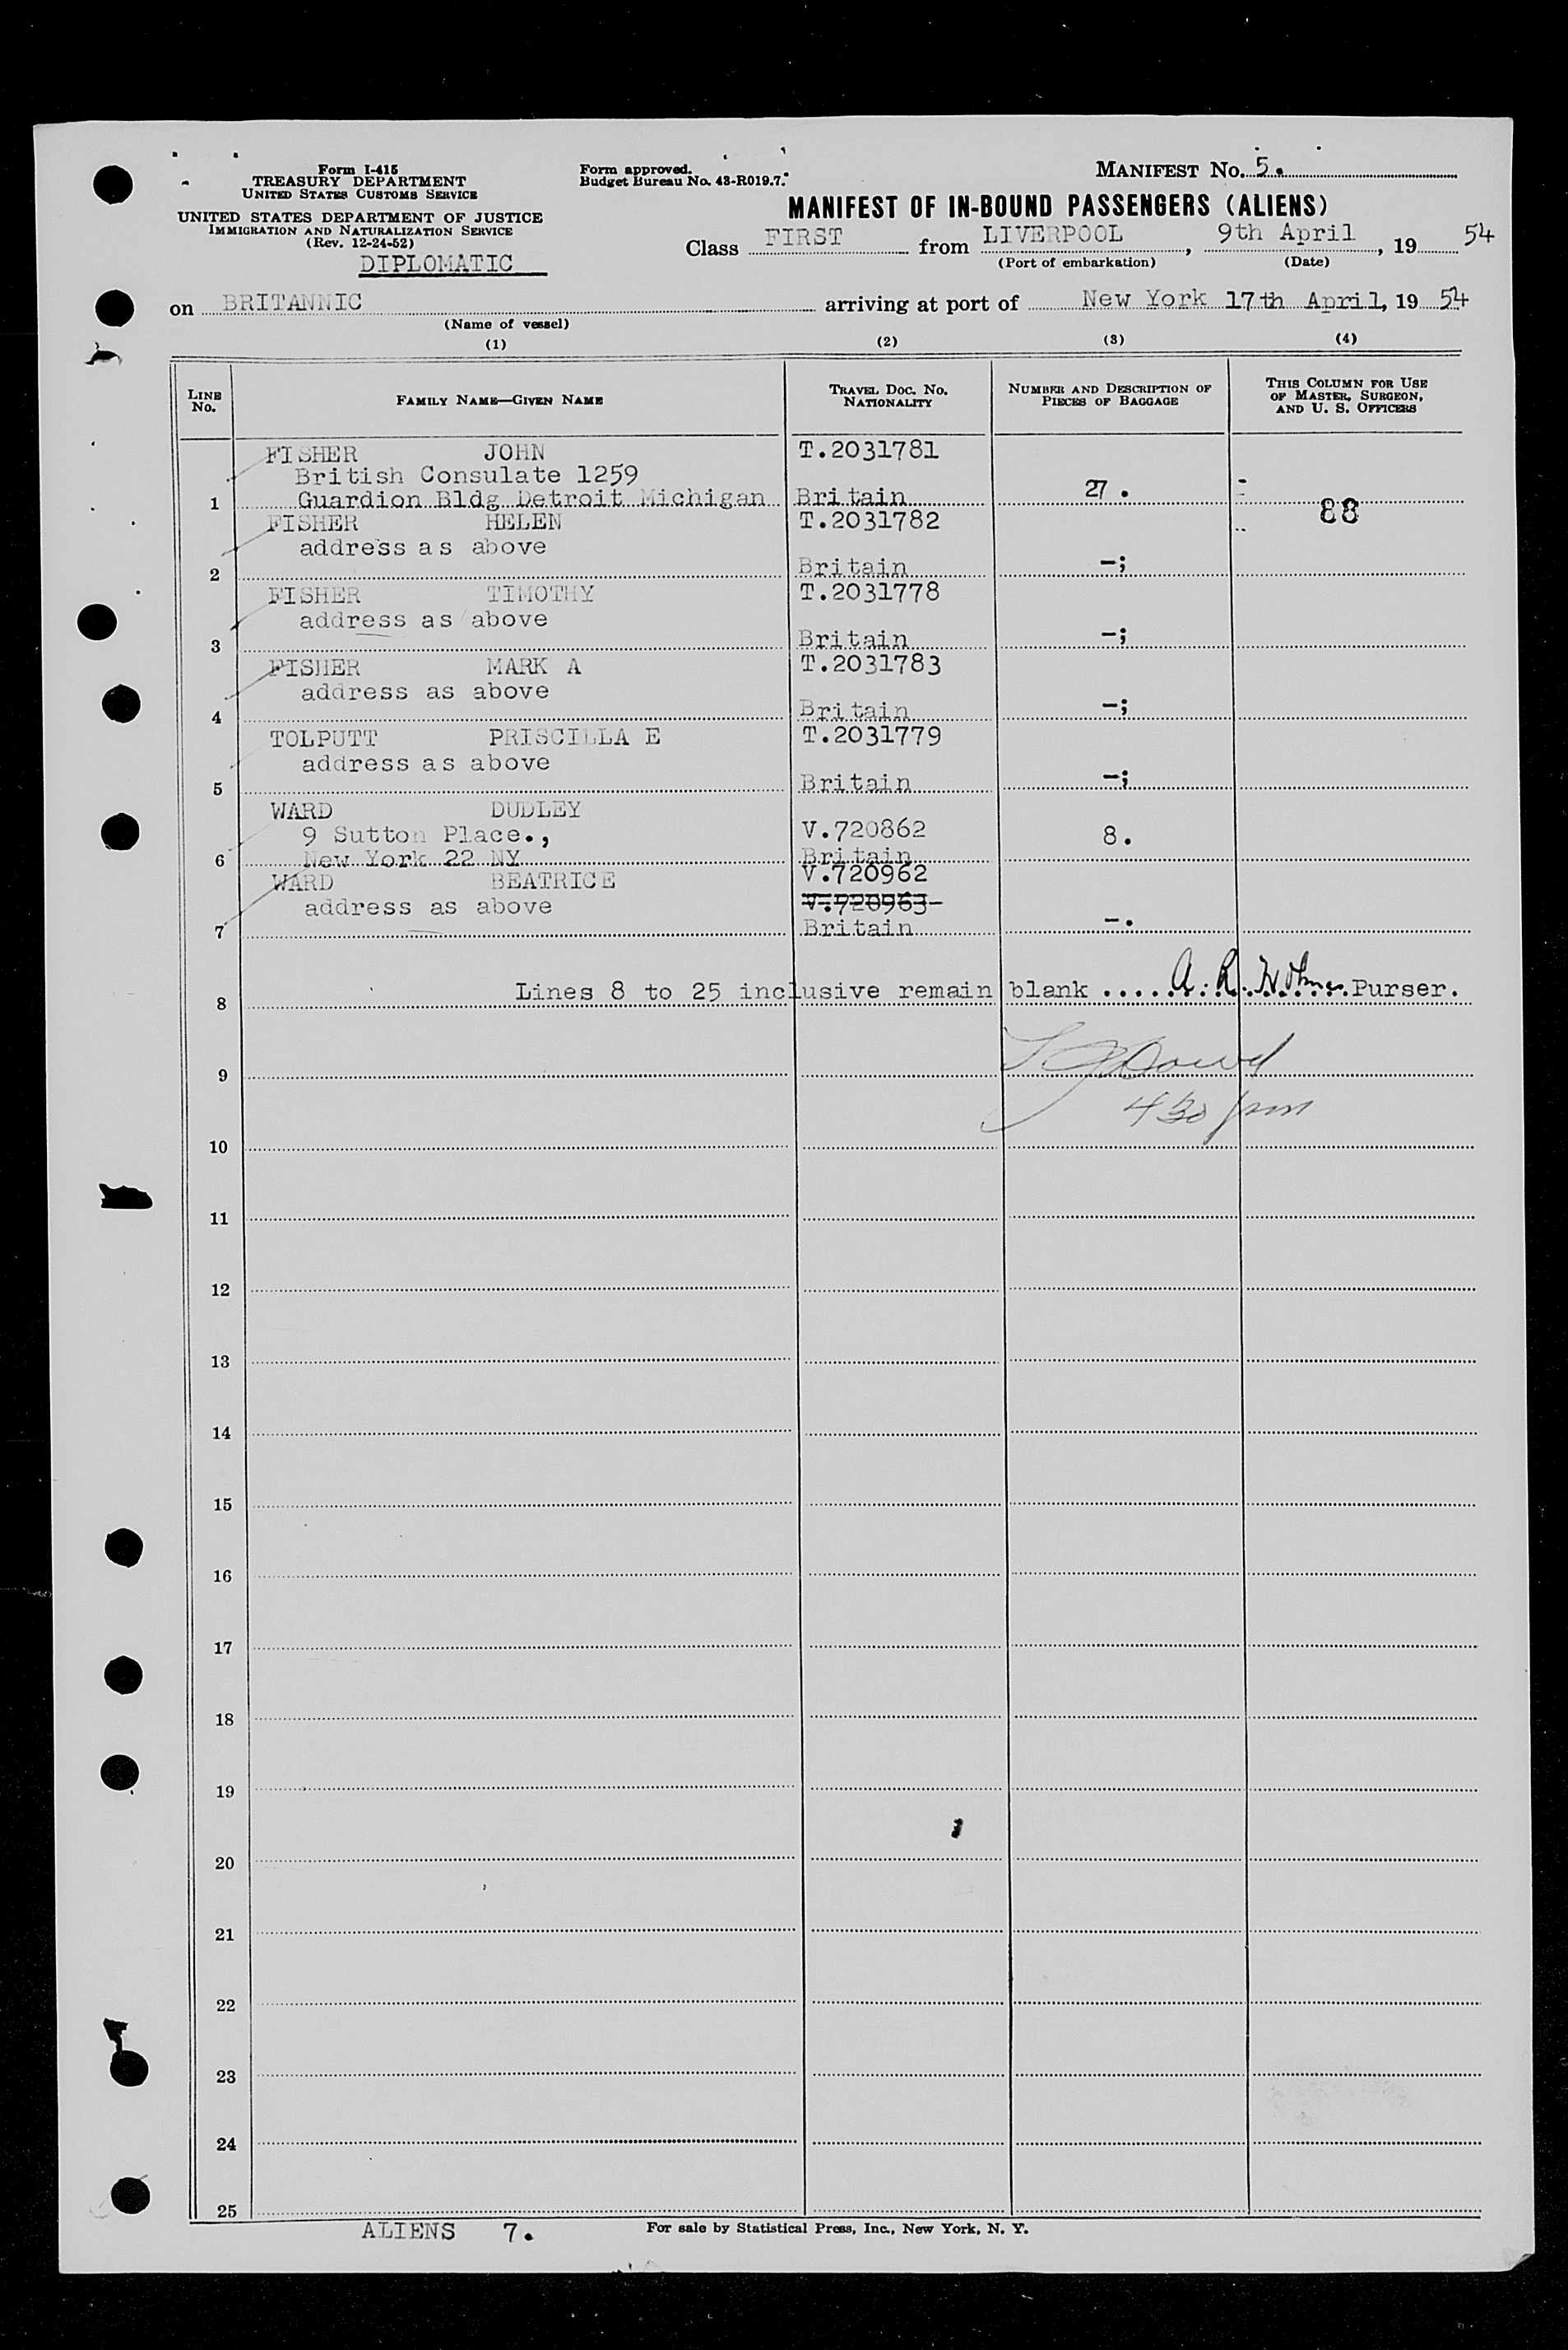 Form I-415
TREASURY DEPARTMENT
UNITED STATES CUSTOMS SERVICE
UNITED STATES DEPARTMENT OF JUSTICE
IMMIGRATION AND NATURALIZATION SERVICE
(Rev. 12-24-52)
DIPLOMATIC
Form approved.
Budget Bureau No. 43-R019.7.
MANIFEST NO. 5.
MANIFEST OF IN-BOUND PASSENGERS (ALIENS)
Class FIRST from LIVERPOOL, 9th April, 19 54
(Port of embarkation) (Date)
on BRITANNIC arriving at port of New York 17th April, 19 54
(Name of vessel)
(1) (2) (3) (4)
LINE NO.
FAMILY NAME—GIVEN NAME
TRAVEL DOC. NO. NATIONALITY
NUMBER AND DESCRIPTION OF PIECES OF BAGGAGE
THIS COLUMN FOR USE OF MASTER, SURGEON, AND U. S. OFFICERS
FISHER JOHN T.2031781
British Consulate 1259
1 Guardion Bldg Detroit Michigan Britain 27. 88
FISHER HELEN T.2031782
address as above
2 Britain -;
FISHER TIMOTHY T.2031778
address as above
3 Britain -;
FISHER MARK A T.2031783
address as above
4 Britain -;
TOLPUTT PRISCILLA E T.2031779
address as above
5 Britain -;
WARD DUDLEY
9 Sutton Place., V.720862 8.
6 New York 22 NY Britain
WARD BEATRICE V.720962
address as above V.720963
7 Britain -.
8 Lines 8 to 25 inclusive remain blank ..... A. R. ..... Purser.
9
4 30 pm
10
11
12
13
14
15
16
17
18
19
20
21
22
23
24
25
ALIENS 7. For sale by Statistical Press, Inc., New York, N. Y.